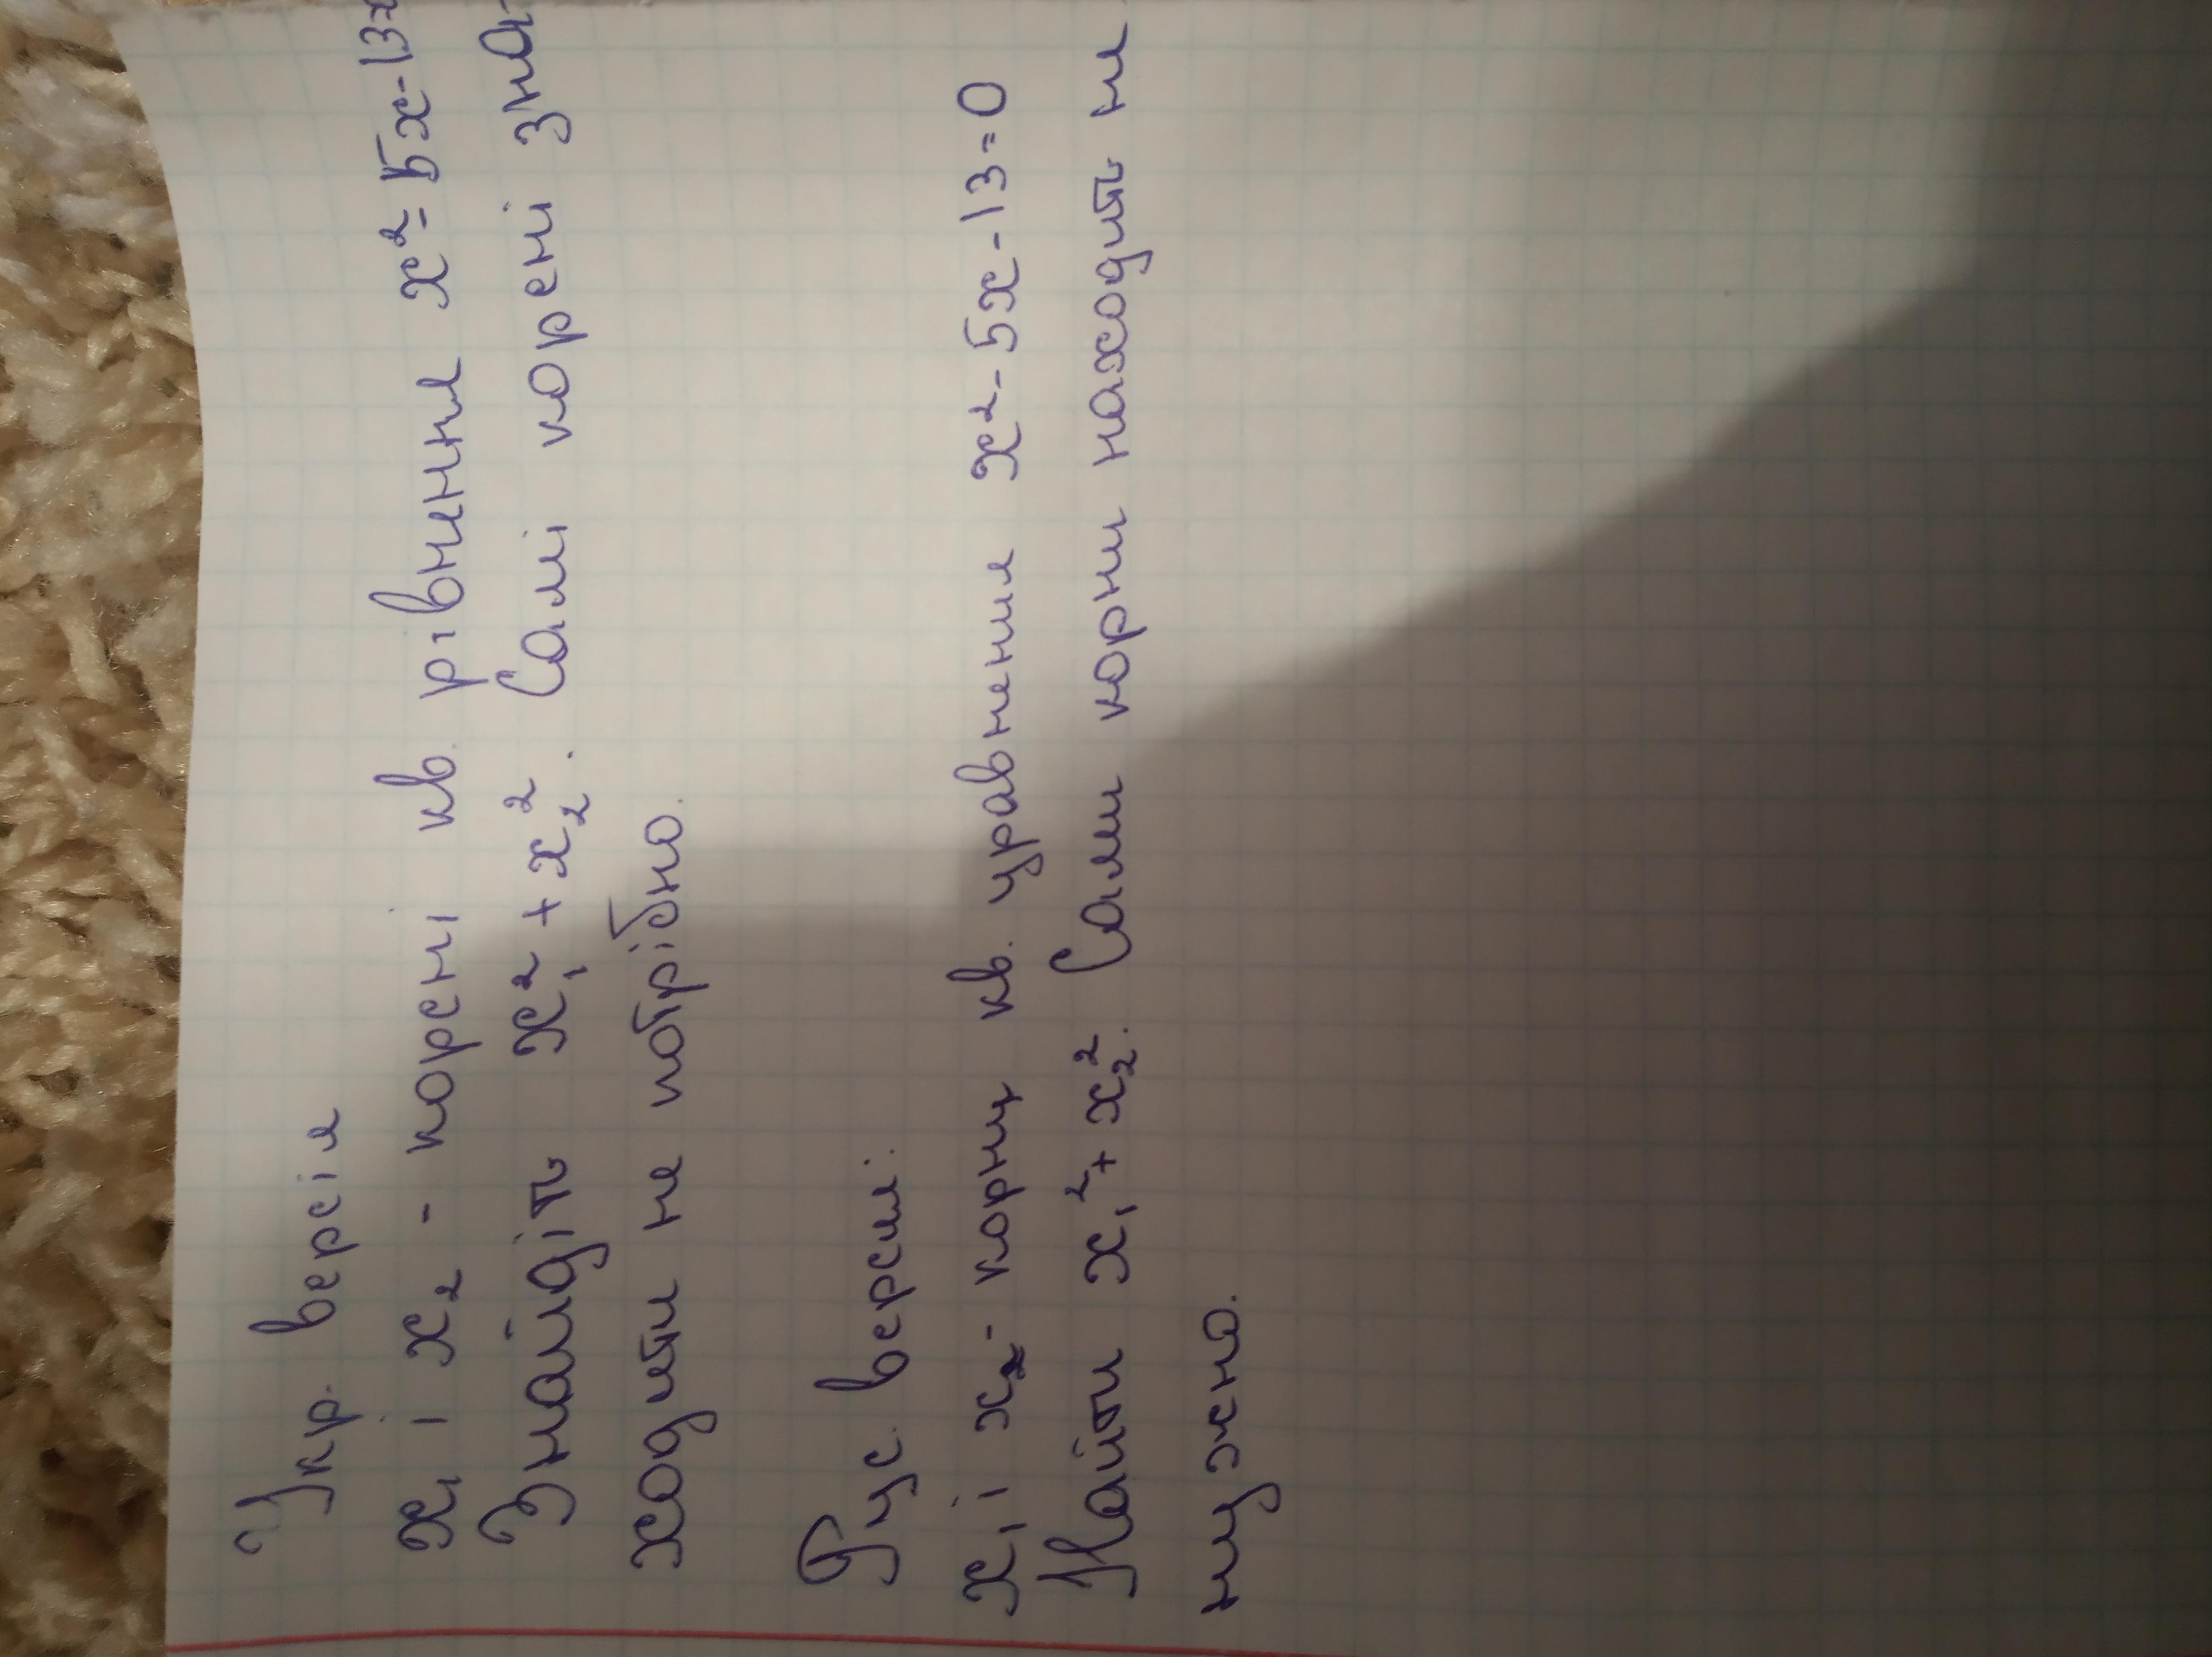 Укр. версія
x₁ і x₂ - корені кв. рівняння x² = 5x-13=
Знайдіть x₁² + x₂². Самі корені зна-
ходити не потрібно.
Рус. версия:
x₁ і x₂ - корни кв. уравнения x² - 5x - 13 = 0
Найти x₁² + x₂². Сами корни находить не
нужно.